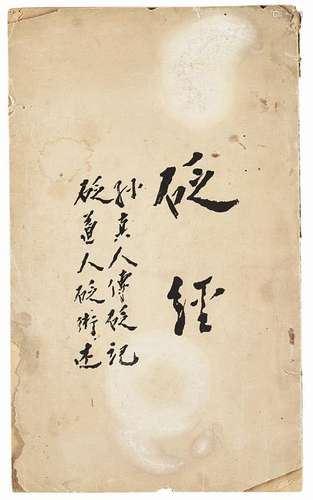 砭經
孙真人傳砭记
砭道人砭術